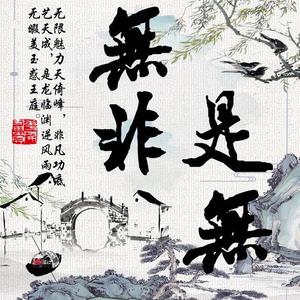 無非
是無
无限魅力天倚峰，非凡功底
艺天成，是龙临渊逆风雨，
无暇美玉惑王庭。